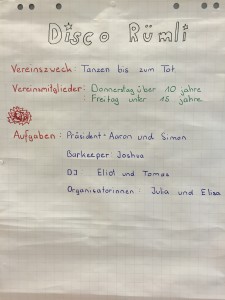 Disco Rümli
Vereinszweck: Tanzen bis zum Tot
Vereinsmitglieder: Donnerstag über 10 jahre
Freitag unter 15 jahre
Aufgaben: Präsident: Aaron und Simon
Barkeeper: Joshua
DJ Eliot und Tomas
Organisatorinnen: Julia und Elisa